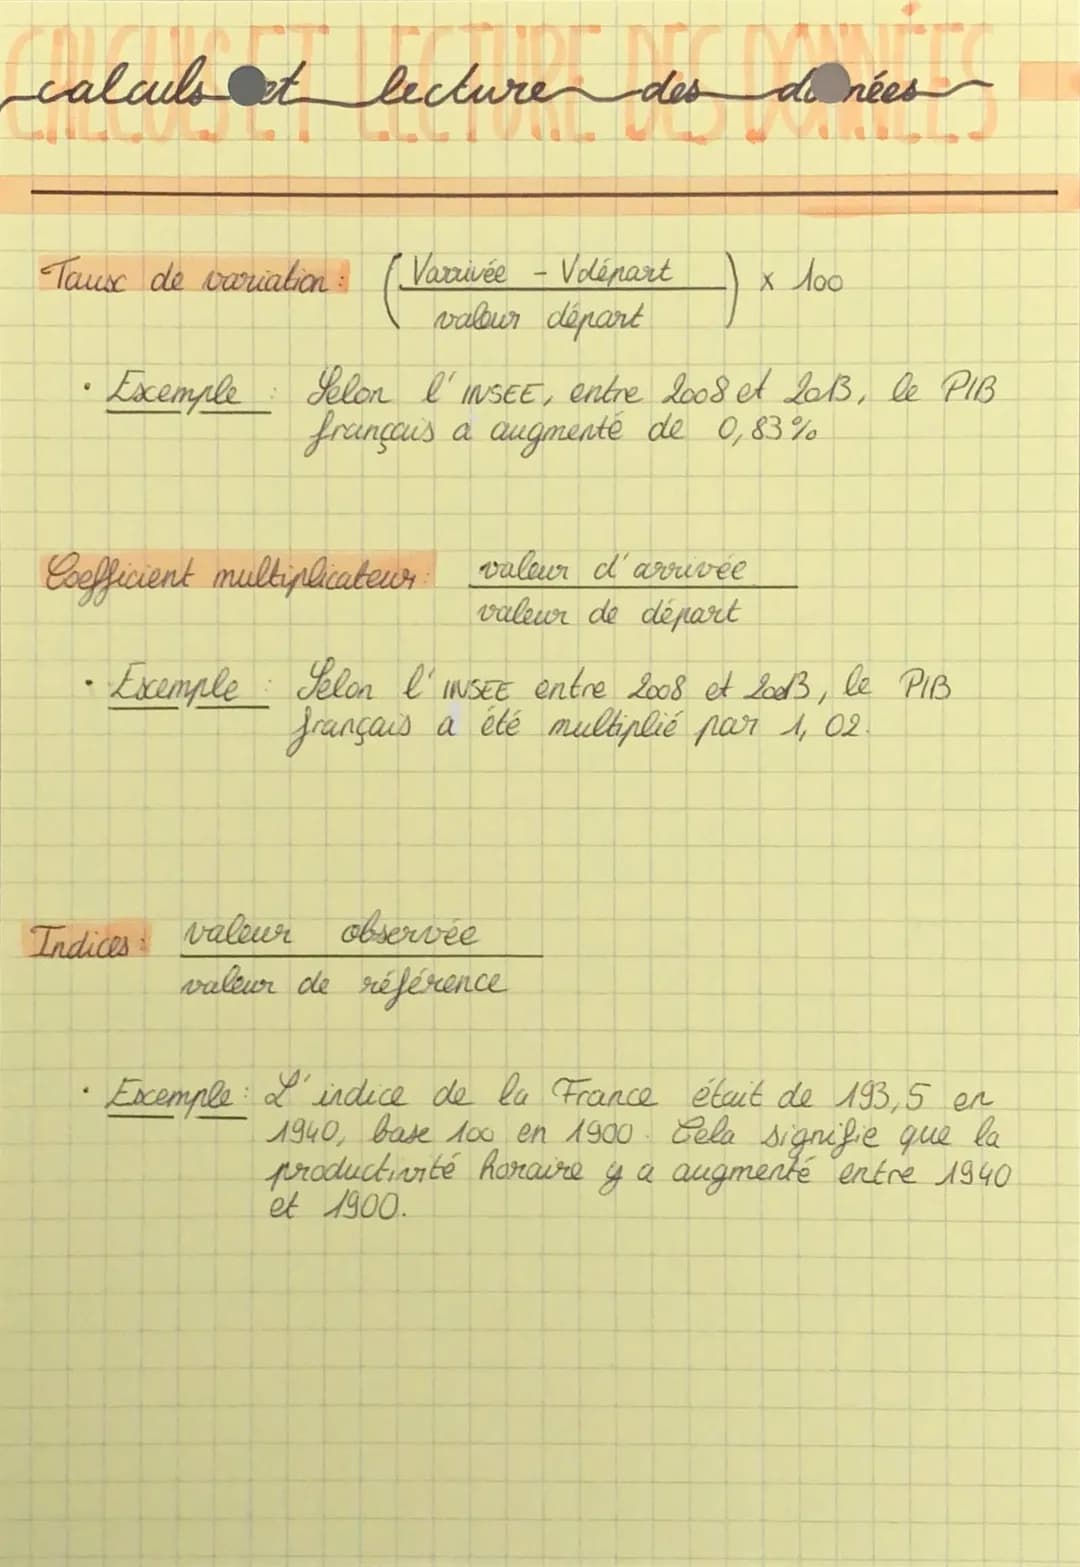 CALCULS ET LECTURE DES DONNÉES
calculs et lecture des données
Taux de variation : ( Varrivée - Vdépart ) x 100
valeur départ
• Exemple : Selon l'INSEE, entre 2008 et 2013, le PIB
français a augmenté de 0,83%
Coefficient multiplicateur : valeur d'arrivée
valeur de départ
• Exemple : Selon l'INSEE entre 2008 et 2013, le PIB
français a été multiplié par 1,02.
Indices : valeur observée
valeur de référence
• Exemple : L'indice de la France était de 193,5 en
1940, base 100 en 1900. Cela signifie que la
productivité horaire y a augmenté entre 1940
et 1900.